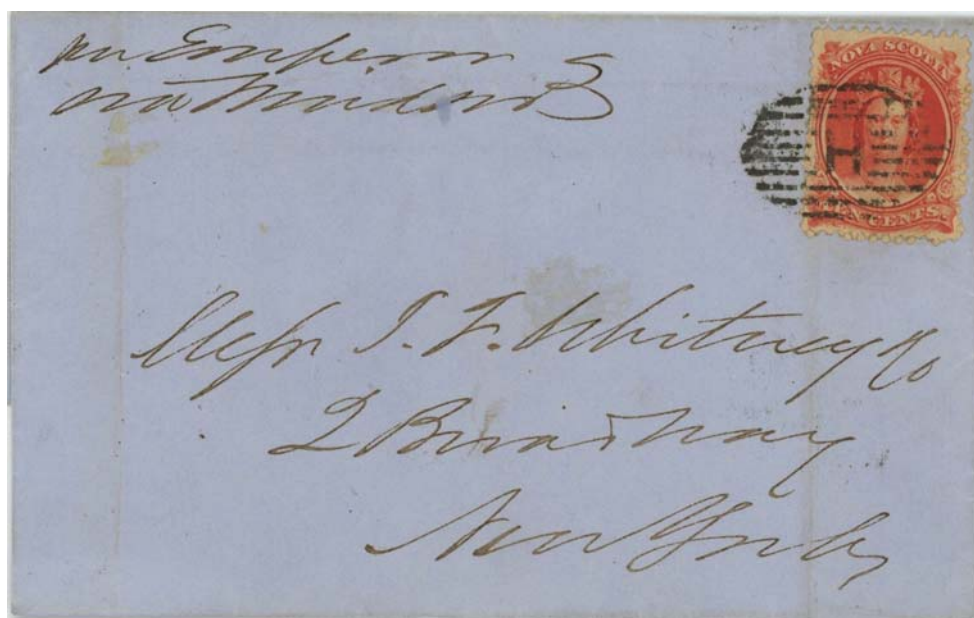 per Emperor
via Windsor
NOVA SCOTIA
H
CENTS
Messrs J. F. Whitney & Co
2 Broadway
New York